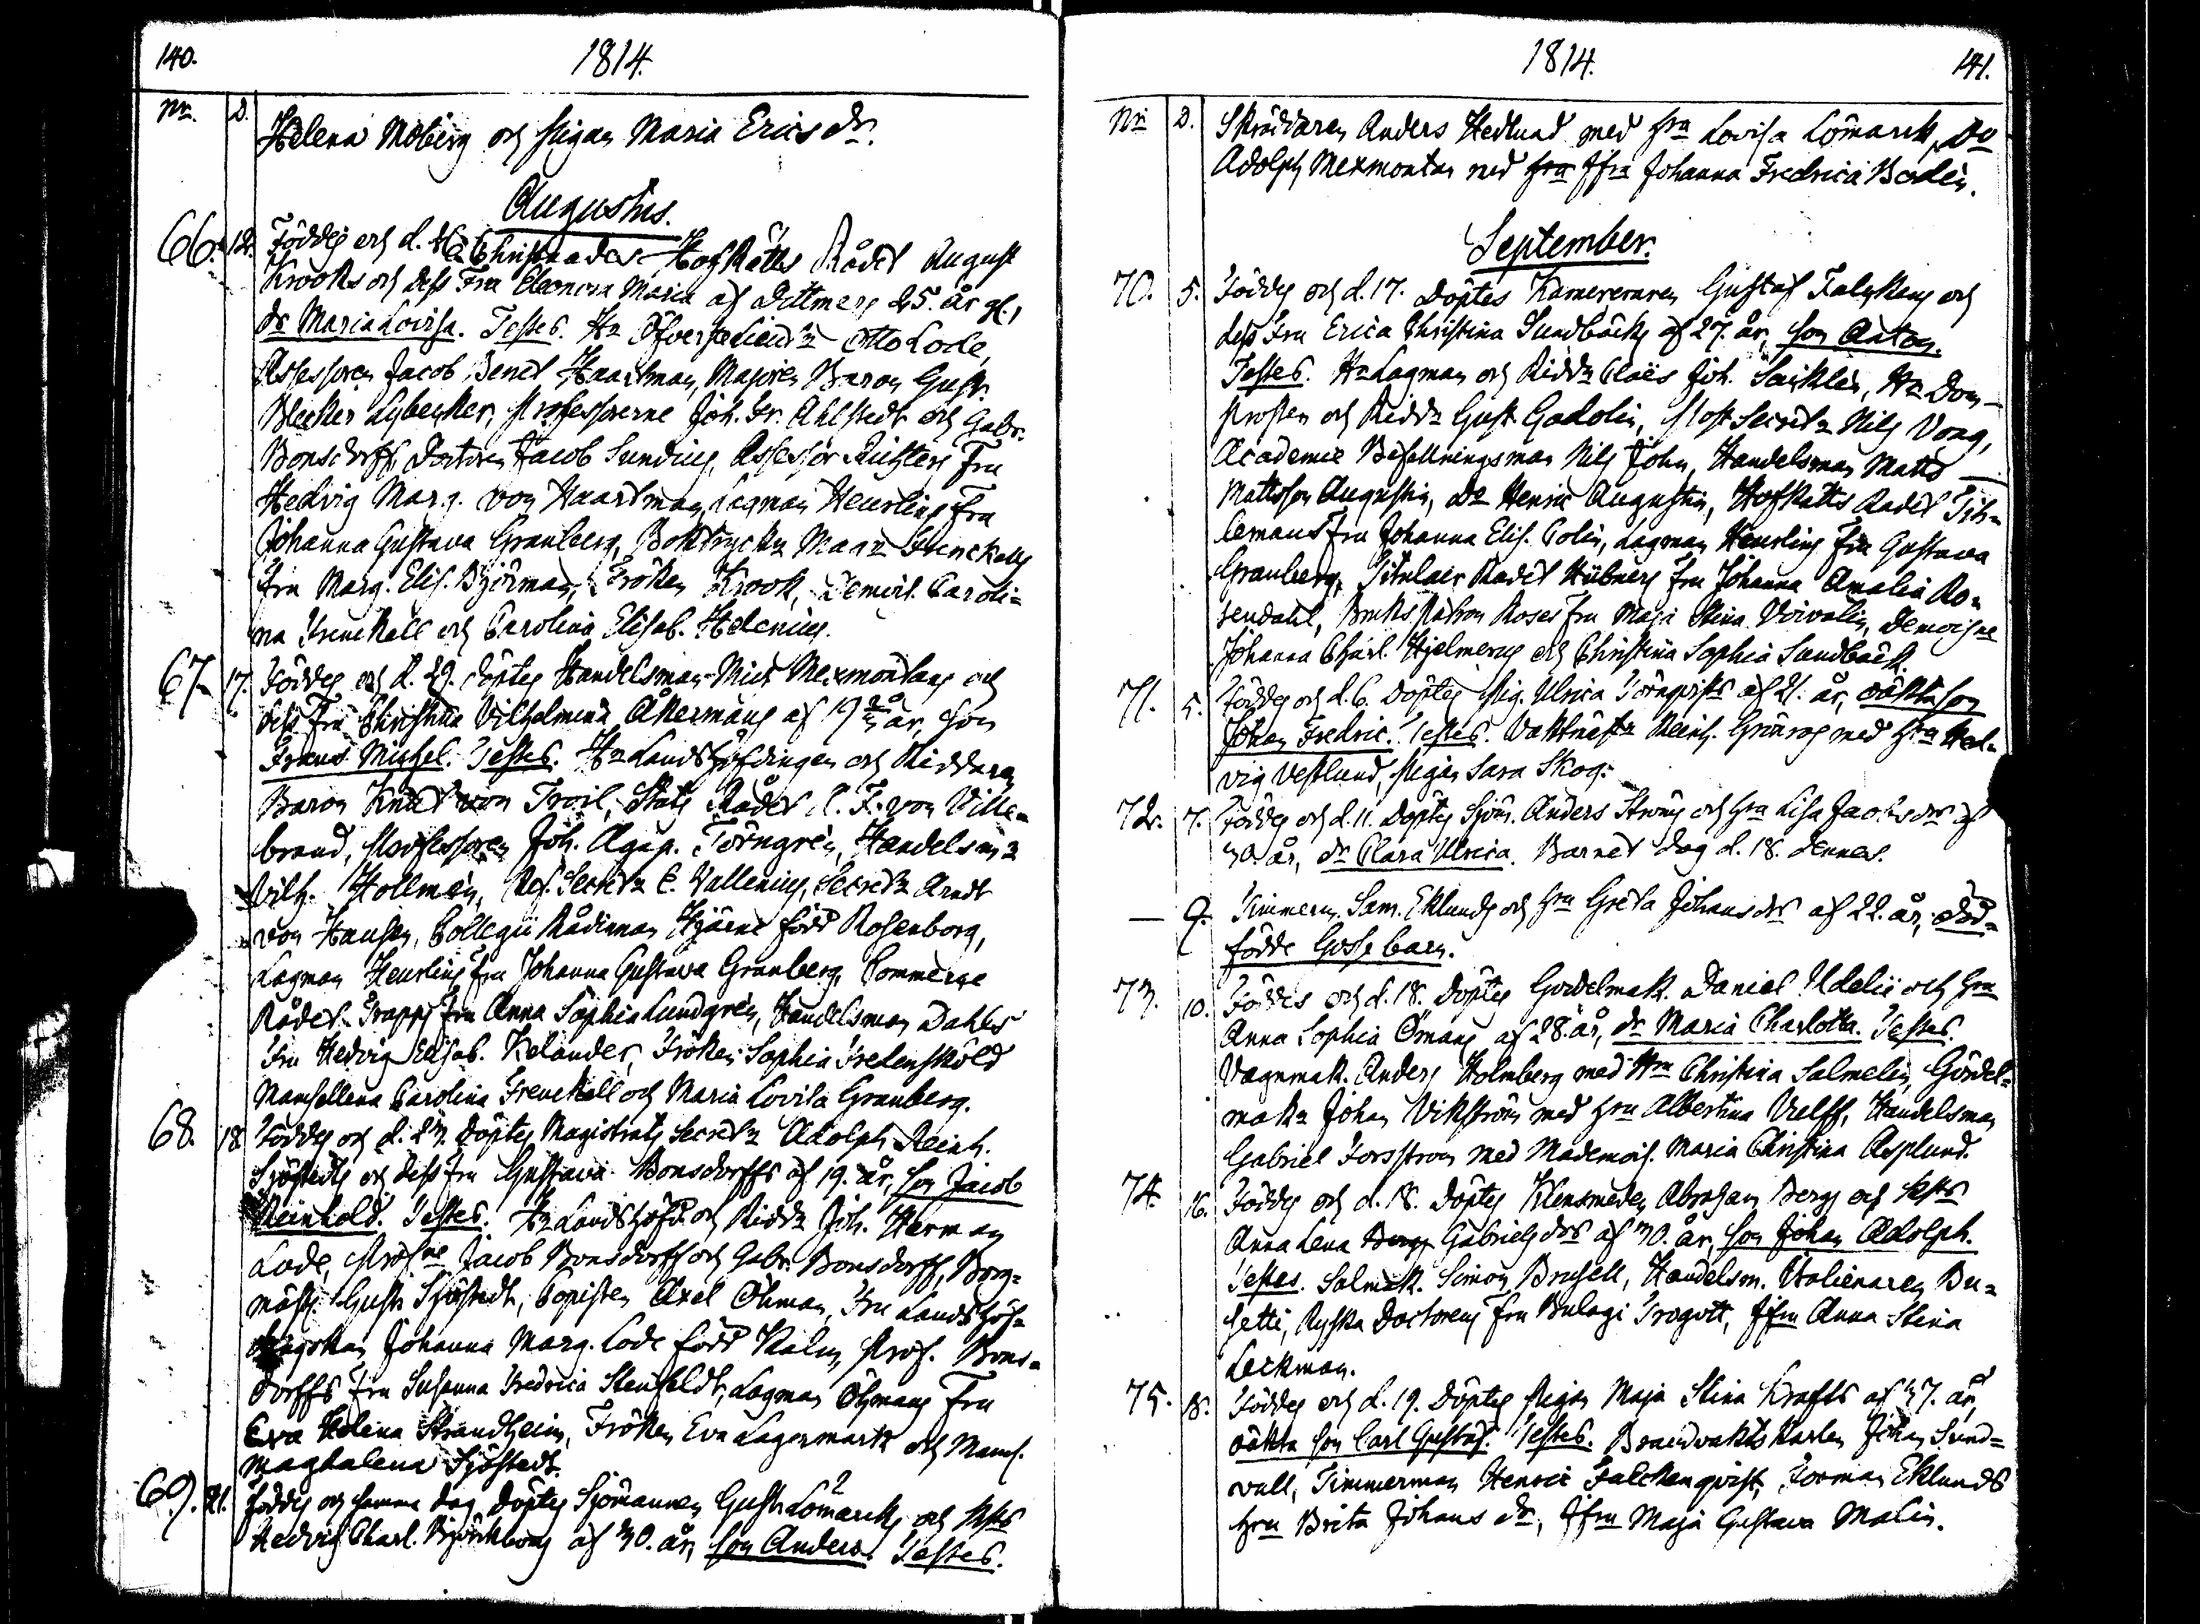 140.
1814.
Nr. D.
Helena Moberg och Pigan Maria Ericsdr.
Augustus.
66. 12. Föddes och d. Christnades HofRätts Rådet August
Krooks och dess Fru Eleonora Maria af Dittmers 25. år gl.,
dr Maria Lovisa. Testes. Hr Öfverstelieutn Otto Lode,
Assessoren Jacob Benet Haartman, Majoren Baron Gust.
Lybecker, Professorerne Joh. Fr. Ahlstedt och Gabr.
Bonsdorff, Doctoren Jacob Sundius, Assessor Richters Fru
Hedvig Marg. von Haartman, Lagman Heurlins Fru
Johanna Gustava Granberg, Boktryckr Magr Frenckells
Fru Marg. Elis. Björman, Fröken Krook, Demois. Caroli-
na Frenckell och Carolina Elisab. Helenius.
67. 17. Föddes och d. 29. döptes Handelsman Mich Mexmontans och
dess Fru Christina Vilhelmina Åkermans af 19 år, son
Frans Michel. Testes. Hr Landshöfdingen och Riddaren
Baron Knut von Troil, Stats Rådet C. F. von Ville-
brand, Professoren Joh. Agap. Törngren, Handelsmn
Vilh. Hollmén, Ref. Secretr E. Vallenius, Secretr Arndt
von Hausen, Collegii Rådinnan Hjärne född Rosenborg,
Lagman Heurlins fru Johanna Gustava Granberg, Commerce
Rådet Trapps fru Anna Sophia Lundgrén, Handelsman Dahls
Fru Hedvig Elisab. Kelander, Fröken Sophia Fredensköld
Mamsellerna Carolina Frenckell och Maria Lovisa Granberg.
68. 18 Föddes och d. 27. döptes Magistrats Secretr Adolph Reinh.
Sjöstedts och dess fru Gustava Bonsdorffs af 19. år, son Jacob
Reinhold. Testes. Hr Landshöfd. och Riddr Joh. Herman
Lode, Profne Jacob Bonsdorff och Gabr. Bonsdorff, Borg-
mäst. Gust. Sjöstedt, Copisten Axel Öhman, Fru Landshöf-
dingskan Johanna Marg. Lode född Kalm, Prof. Bons-
dorffs fru Susanna Fredrica Stenfeldt, Lagman Öhmans Fru
Eva Helena Strandheim, Fröken Eva Lagermarck och Mams.
Magdalena Sjöstedt.
69. 21. Föddes och samma dag döptes Sjömannen Gust. Lömarcks och Hus
Hedvig Charl. Björkboms af 30. år, son Anders. Testes.
1814.
141.
Nr D. Skräddaren Anders Hedlund med hru Lovisa Lömarck, Do
Adolph Mexmontan med hru Jfru Johanna Fredrica Bodén.
September.
70. 5. Föddes och d. 17. döptes Kamereraren Gustaf Falcks och
dess Fru Erica Christina Sundbäcks af 27. år, son Anton.
Testes. Hr Lagman och Riddr Claës Joh. Sacklén, Hr Dom-
prosten och Riddr Gust. Gadolin, Secretr Nils
Academie Befallningsman Nils John, Handelsman Matts
Mattsson Augustin, Do Henric Augustin, HofRätts Rådet Tih-
lemans fru Johanna Elis. Polin, Lagman Heurlins fru Gustava
Granberg, Titulair Rådet Hübners fru Johanna Amalia Ro-
sendahl, Bruks Patron Roses fru Maja Stina Voivalin, Demoisne
Johanna Charl. Hjelmerus och Christina Sophia Sundbäck.
71. 5. Föddes och d. 6. döptes Pig. Ulrica Törnqvists af 21. år, oäkta son
Johan Fredric. Testes. Vaktmäst. Reinh. Grönroos med hru Hed-
vig Vestlund, Pigan Sara Skog.
72. 7. Föddes och d. 11. döptes Sjöm. Anders Ströms och hru Lisa Jacobsdrs af
30. år, dr Clara Ulrica. Barnet dog d. 18. dennes.
— 9. Timmerm. Sam. Eklunds och hru Greta Johansdrs af 22. år, död-
födde Gossebarn.
73. 10. Föddes och d. 18. döptes Gördelmak. Daniel Udelii och hru
Anna Sophia Ömans af 28. år, dr Maria Charlotta. Testes.
Vagnmak. Anders Holmberg med Hru Christina Salmelin, Gördel-
makr Johan Vikström med hru Albertina Vielff, Handelsman
Gabriel Forsström med Mademois. Maria Christina Asplund.
74. 16. Föddes och d. 18. döptes Klensmeden Abraham Bergs och Hus
Anna Lena Bergs Gabrielsdrs af 30. år, son Johan Adolph.
Testes. Salmak. Simon Brusell, Handelsm. Italienaren Bu-
setti, Ryska Doctorens fru Pulagi Trogott, Jfru Anna Stina
Leckman.
75. 18. Föddes och d. 19. döptes Pigan Maja Stina Krafts af 37. år,
oäkta son Carl Gustaf. Testes. Brandvakts Karlen Johan Sund-
vall, Timmerman Henric Falckenqvist, Forman Eklunds
hru Brita Johansdr, Jfru Maja Gustava Malin.